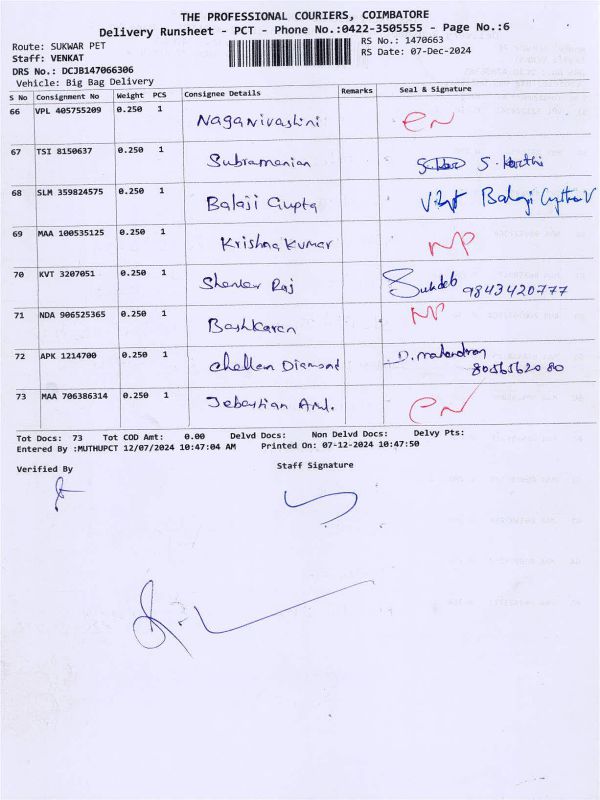 THE PROFESSIONAL COURIERS, COIMBATORE
Delivery Runsheet - PCT - Phone No.:0422-3505555 - Page No.:6
Route: SUKWAR PET RS No.: 1470663
Staff: VENKAT RS Date: 07-Dec-2024
DRS No.: DCJB147066306
Vehicle: Big Bag Delivery
S No Consignment No Weight PCS Consignee Details Remarks Seal & Signature
66 VPL 405755209 0.250 1 Naganivashini
67 TSI 8150637 0.250 1 Subramanian S. Karthi
68 SLM 359824575 0.250 1 Balaji Gupta
69 MAA 100535125 0.250 1 Krishna Kumar NP
70 KVT 3207051 0.250 1 Shanker Raj Sukdeb 9843420777
71 NDA 906525365 0.250 1 Bashkaran NP
72 APK 1214700 0.250 1 Chellam Diamond D. mahendran
8056562080
73 MAA 706386314 0.250 1 Jebastian
Tot Docs: 73 Tot COD Amt: 0.00 Delvd Docs: Non Delvd Docs: Delvy Pts:
Entered By :MUTHUPCT 12/07/2024 10:47:04 AM Printed On: 07-12-2024 10:47:50
Verified By Staff Signature